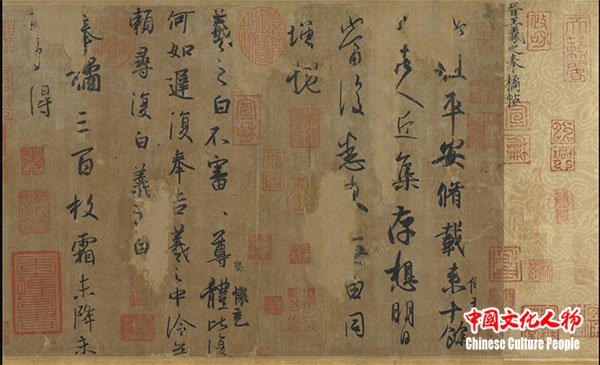 晉王羲之奉橘帖
此粗平安脩載來十餘
日諸人近集存想明日
當復悉來無由同
增慨
羲之白不審尊體比復
察 懷充
何如遲復奉告羲之中冷無
賴尋復白羲之白
奉橘三百枚霜未降未
可多得
中国文化人物
Chinese Culture People